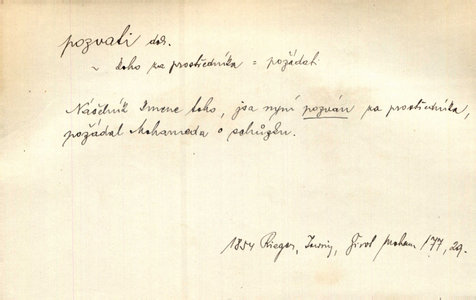 pozvati dok.
~ koho za prostředníka = požádat
Náčelník Imene toho, jsa nyní pozván za prostředníka,
požádal Mohameda o schůzku.
1854 Rieger, Irwing, Život Moham 177, 29.